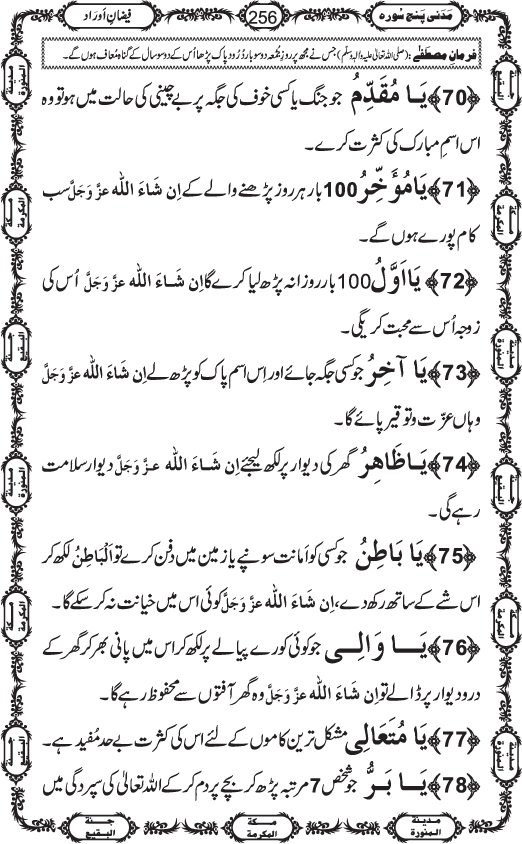 مَدَنی پنج سورہ 256 فیضانِ اَوراد
فرمانِ مصطفٰے : (صلی اللہ تعالیٰ علیہ والہٖ وسلّم) جس نے مجھ پر روزِ جُمعہ دو سو بار دُرُودِ پاک پڑھا اُس کے دو سو سال کے گناہ مُعاف ہوں گے۔
﴿70﴾ یَا مُقَدِّمُ جو جنگ یا کسی خوف کی جگہ پر بے چینی کی حالت میں ہو تو وہ
اس اسمِ مبارک کی کثرت کرے۔
﴿71﴾ یَا مُؤَخِّرُ 100 بار ہر روز پڑھنے والے کے اِن شَاءَ اللّٰہ عزَّ وَجَلَّ سب
کام پورے ہوں گے۔
﴿72﴾ یَا اَوَّلُ 100 بار روزانہ پڑھ لیا کرے گا اِن شَاءَ اللّٰہ عزَّ وَجَلَّ اُس کی
زوجہ اُس سے محبت کریگی۔
﴿73﴾ یَا آخِرُ جو کسی جگہ جائے اور اِس اسمِ پاک کو پڑھ لے اِن شَاءَ اللّٰہ عزَّ وَجَلَّ
وہاں عزّت و توقیر پائے گا۔
﴿74﴾ یَا ظَاھِرُ گھر کی دیوار پر لکھ لیجئے اِن شَاءَ اللّٰہ عزَّ وَجَلَّ دیوار سلامت
رہے گی۔
﴿75﴾ یَا بَاطِنُ جو کسی کو اَمانت سونپے یا زمین میں دفن کرے تو اَلْبَاطِنُ لکھ کر
اس شے کے ساتھ رکھ دے، اِن شَاءَ اللّٰہ عزَّ وَجَلَّ کوئی اس میں خیانت نہ کر سکے گا۔
﴿76﴾ یَا وَالِی جو کوئی کورے پیالے پر لکھ کر اس میں پانی بھر کر گھر کے
درودیوار پر ڈالے تو اِن شَاءَ اللّٰہ عزَّ وَجَلَّ وہ گھر آفتوں سے محفوظ رہے گا۔
﴿77﴾ یَا مُتَعَالِی مشکل ترین کاموں کے لئے اس کی کثرت بے حد مُفید ہے۔
﴿78﴾ یَا بَرُّ جو شخص 7 مرتبہ پڑھ کر بچے پر دم کر کے اللہ تعالیٰ کی سپردگی میں
مدینۃ المنورۃ
جنۃ البقیع
مکۃ المکرمۃ
مکۃ المکرمۃ
جنۃ البقیع
مدینۃ المنورۃ
مدینۃ المنورۃ
جنۃ البقیع
مکۃ المکرمۃ
مکۃ المکرمۃ
جنۃ البقیع
مدینۃ المنورۃ
جنۃ البقیع
مکۃ المکرمۃ
مدینۃ المنورۃ